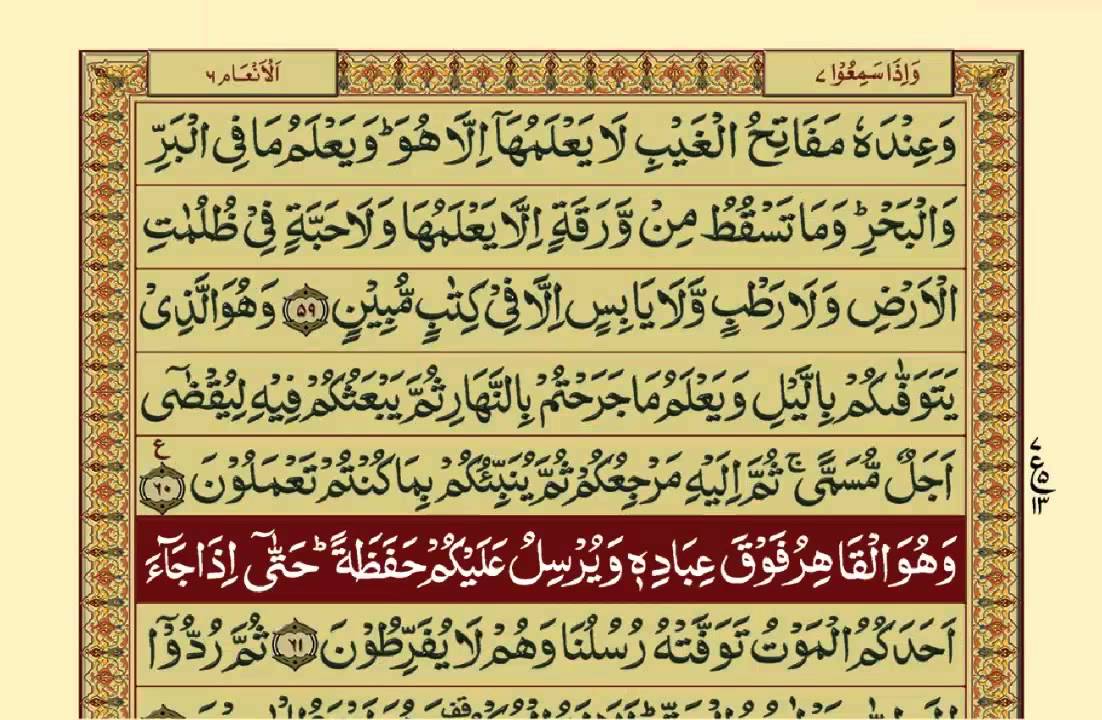 وَاِذَا سَمِعُوْا ٧
اَلْاَنْعَام ٦
وَعِنْدَهٗ مَفَاتِحُ الْغَيْبِ لَا يَعْلَمُهَاۤ اِلَّا هُوَ ؕ وَيَعْلَمُ مَا فِى الْبَرِّ
وَالْبَحْرِ ؕ وَمَا تَسْقُطُ مِنْ وَّرَقَةٍ اِلَّا يَعْلَمُهَا وَلَا حَبَّةٍ فِىْ ظُلُمٰتِ
الْاَرْضِ وَلَا رَطْبٍ وَّلَا يَابِسٍ اِلَّا فِىْ كِتٰبٍ مُّبِيْنٍ ﴿۵۹﴾ وَهُوَ الَّذِىْ
يَتَوَفّٰٮكُمْ بِالَّيْلِ وَيَعْلَمُ مَا جَرَحْتُمْ بِالنَّهَارِ ثُمَّ يَبْعَثُكُمْ فِيْهِ لِيُقْضٰٓى
اَجَلٌ مُّسَمًّى ۚ ثُمَّ اِلَيْهِ مَرْجِعُكُمْ ثُمَّ يُنَبِّئُكُمْ بِمَا كُنْتُمْ تَعْمَلُوْنَ ﴿۶۰﴾ ع
٧ ع ۵ ١٣
وَهُوَ الْقَاهِرُ فَوْقَ عِبَادِهٖ وَيُرْسِلُ عَلَيْكُمْ حَفَظَةً ؕ حَتّٰٓى اِذَا جَآءَ
اَحَدَكُمُ الْمَوْتُ تَوَفَّتْهُ رُسُلُنَا وَهُمْ لَا يُفَرِّطُوْنَ ﴿۶۱﴾ ثُمَّ رُدُّوْۤا